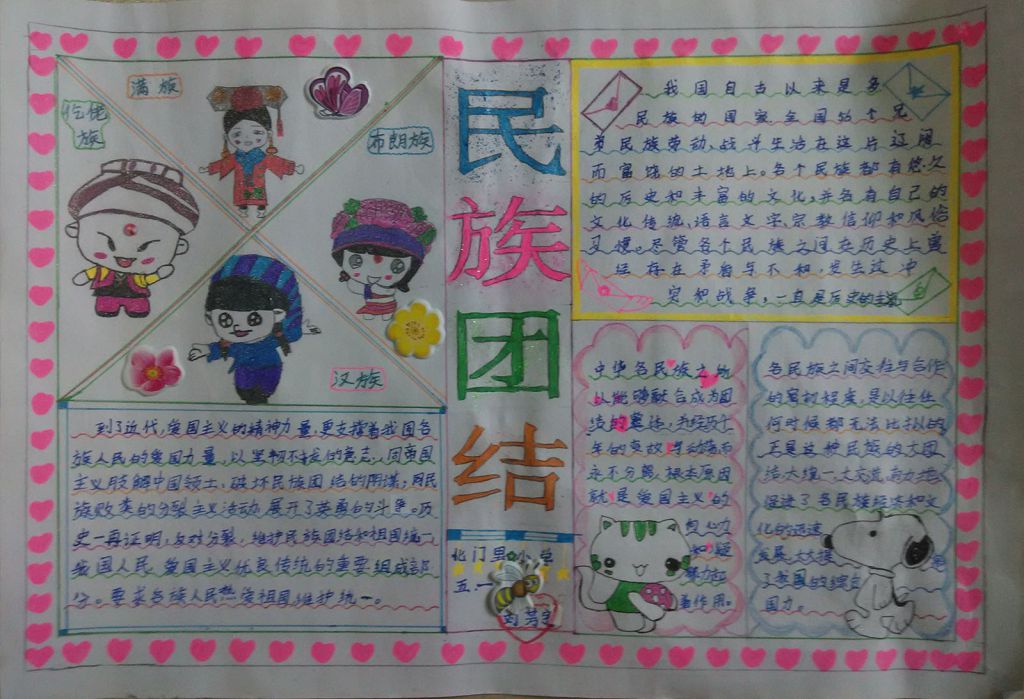 满族
仡佬
族
布朗族
汉族
民
族
团
结
北门里小学
五.一
我国自古以来是多
民族的国家全国56个兄
弟民族劳动、战斗生活在这片辽阔
而富饶的土地上。各个民族都有悠久
的历史和丰富的文化,并各有自己的
文化传统,语言文字,宗教信仰和风俗
习惯。尽管各个民族之间在历史上曾
经存在矛盾与不和,发生过冲
突和战争,一直是历史的主流
到了近代,爱国主义的精神力量,更支撑着我国各
族人民的爱国力量,以坚韧不拔的意志,同帝国
主义肢解中国领土、破坏民族团结的阴谋;同民
族败类的分裂主义活动展开了英勇的斗争。历
史一再证明,反对分裂,维护民族团结和祖国统一,
我国人民爱国主义优良传统的重要组成部
分。要求各族人民热爱祖国维护统一。
中华各民族之所
以能够融合成为团
结的整体,并经历千
年的变故与动荡而
永不分离,根本原因
就是爱国主义的
向心力
和凝
聚力起
着作用。
各民族之间交往与合作
的密切程度,是以往任
何时候都无法比拟的
正是这种民族的大团
结大统一大交流有力地
促进了各民族经济和文
化的迅速
发展,大大提
了我国的综合
国力。